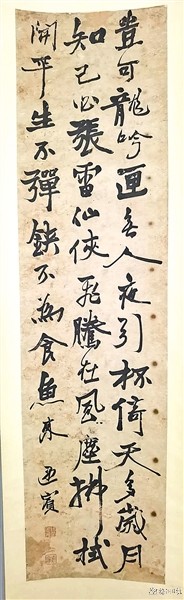 豈可龍吟匣無人夜引杯倚天多歲月
知己必張雷仙俠飛騰在風塵拂拭
開平生不彈鋏不為食魚來
亞賓